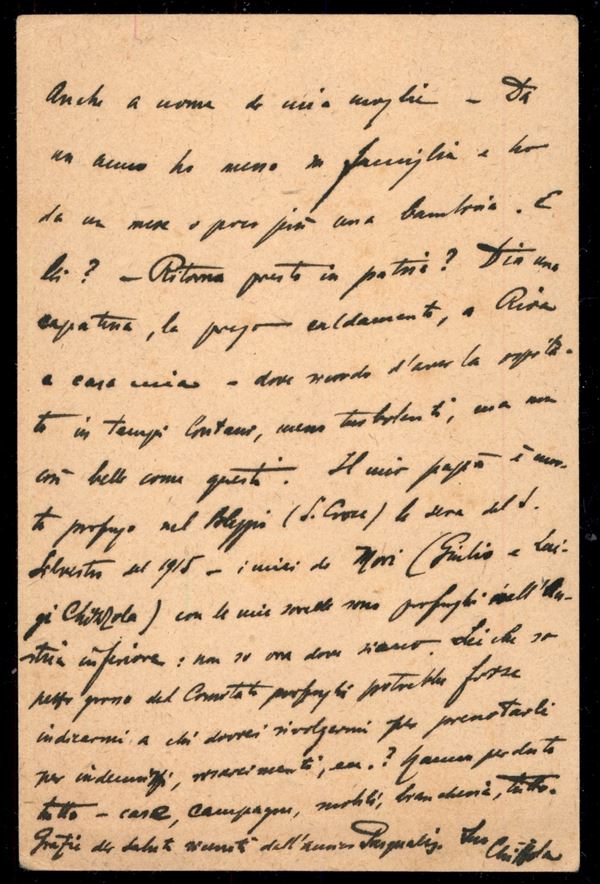 Anche a nome di mia moglie — Da
un anno ho messo su famiglia e ho
da un mese o poco più una bambina. E
lei? — Ritorna presto in patria? Dia una
capatina, la prego caldamente, a Riva
a casa mia — dove ricordo d'aver la ospita-
to in tempi lontani, meno turbolenti, ma non
così belli come questi. Il mio papà è mor-
to profugo nel Bleggio (S. Croce) la sera del S.
Silvestro del 1915 — i miei di Mori (Giulio e Lui-
gi Chizzola) con le mie sorelle sono profughi nell'Au-
stria inferiore: non so ora dove siano. Lei che so
pezzo grosso del Comitato profughi potrebbe forse
indicarmi a chi dovrei rivolgermi per prenotarli
per indennizzi, risarcimenti, ecc.? Hanno perduto
tutto — case, campagne, mobili, biancheria, tutto.
Grazie dei saluti ricevuti dall'amico Suo Chizzola